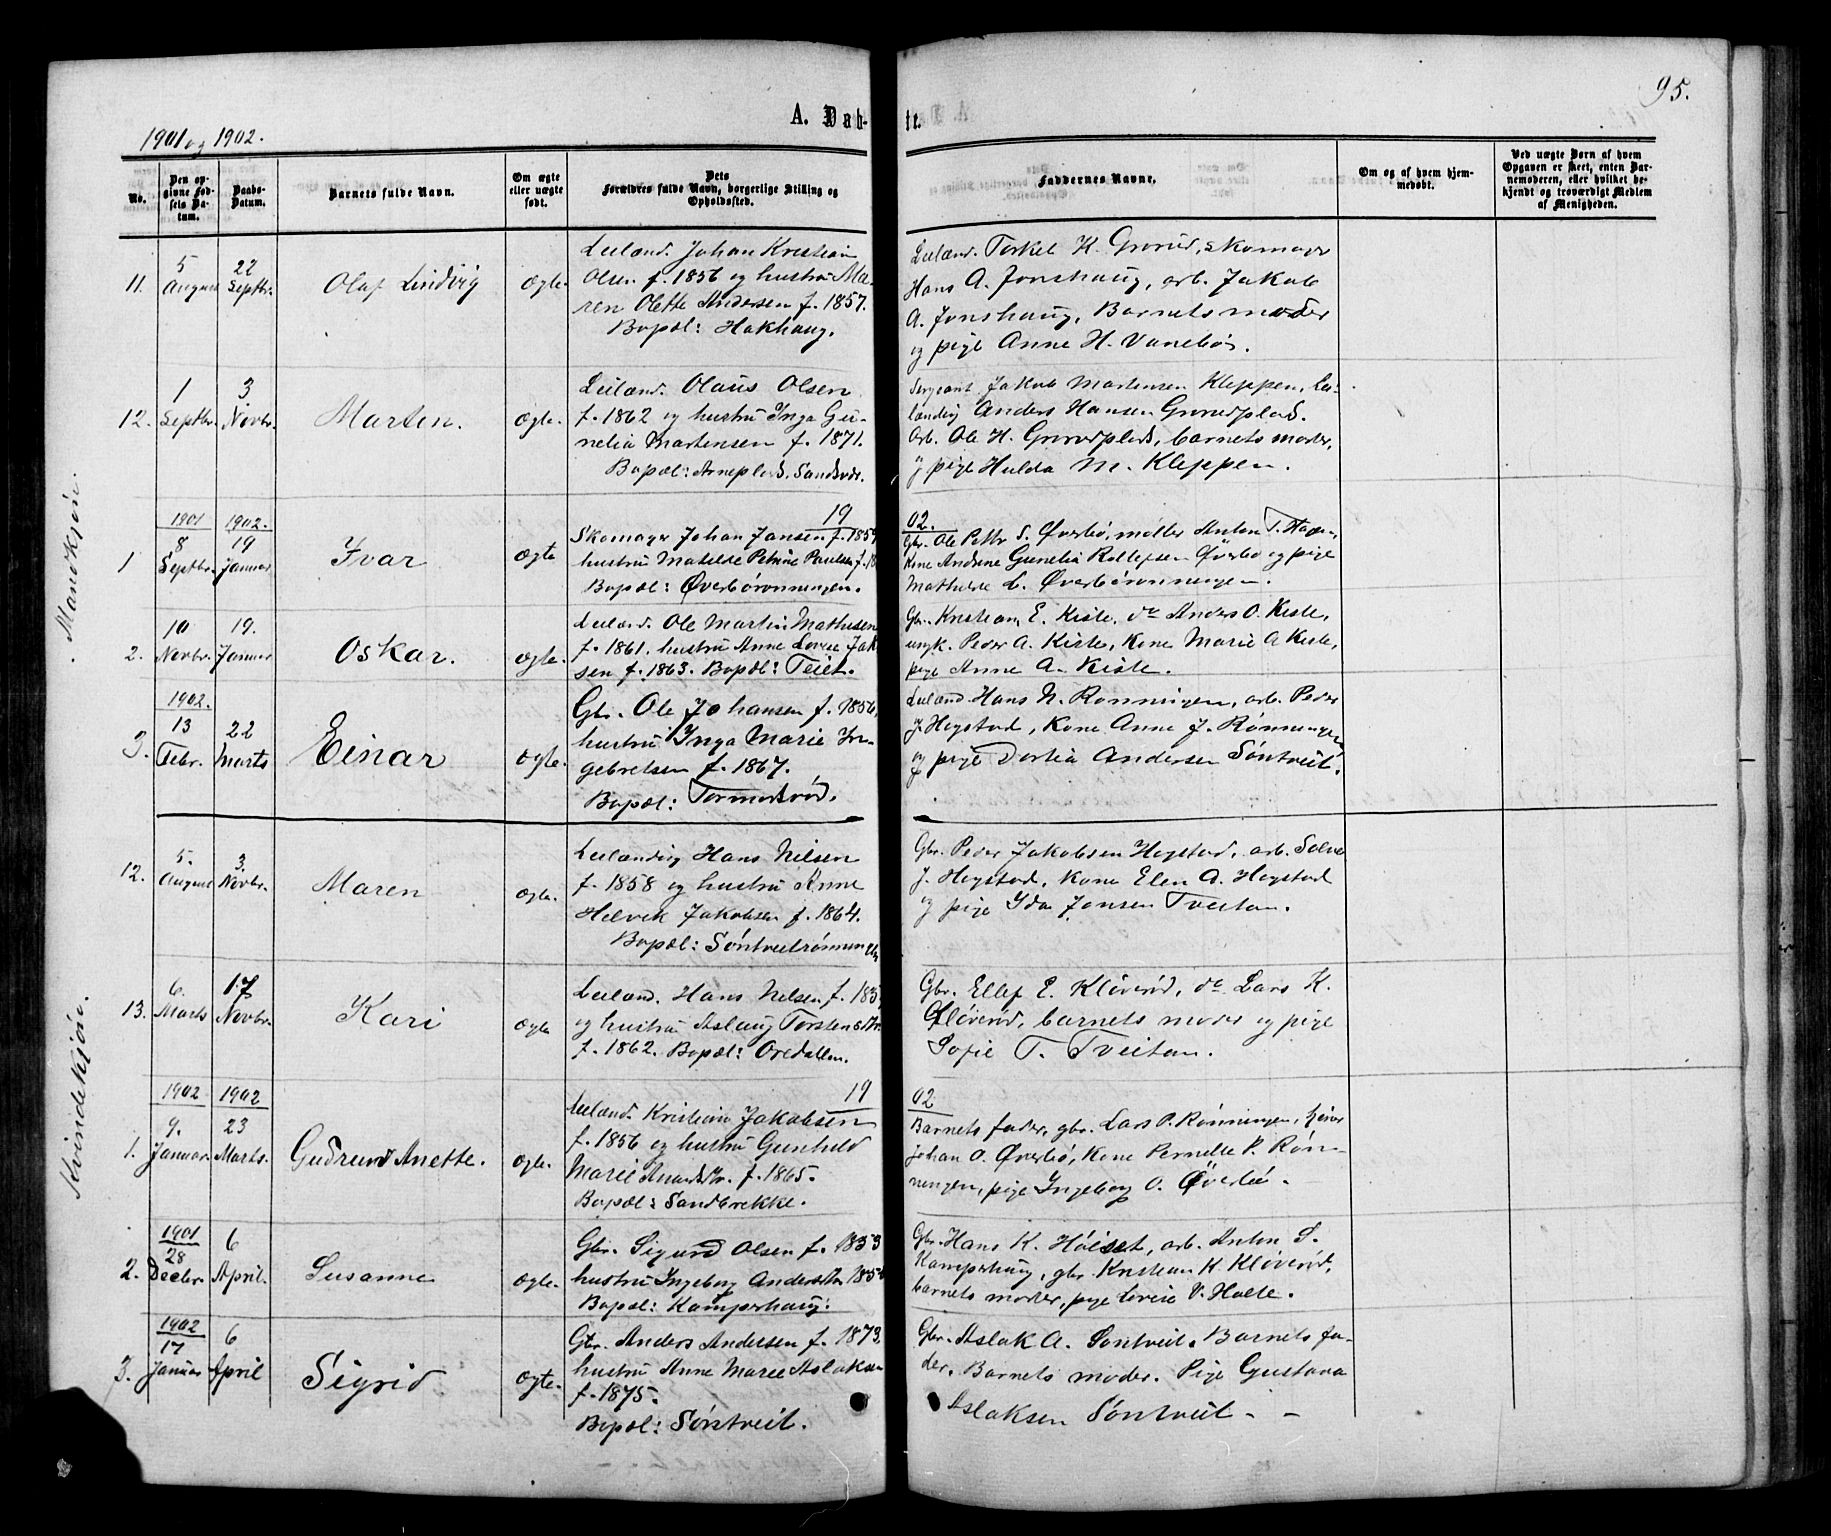 95.
1901 og 1902.
A. Døbte.
No.
Den opgivne Fødsels Datum.
Daabs-Datum.
Barnets fulde Navn.
Om ægte eller uægte født.
Dets Forældres fulde Navn, borgerlige Stilling og Opholdssted.
Faddernes Navne.
Om og af hvem hjemmedøbt.
Ved uægte Børn af hvem Opgaven er skeet, enten Barnemoderen, eller hvilket bekjendt og troværdigt Medlem af Menigheden.
Mandkjøn.
11. 5 August 22 Septbr. Olaf Lindvig Ægte.
Leiland. Johan Kristian
Olsen f. 1856 og hustru Ma-
ren Olette Andersen f. 1857.
Bopæl: Hakhaug.
Leiland. Torkel H. Grorud, skomager
Hans A. Jonshaug, arb. Jakob
A. Jonshaug, Barnets moder
og pige Anne H. Vanebo.
12. 1 Septbr. 3 Novbr. Marten. Ægte.
Leiland. Olaus Olsen
f. 1862 og hustru Inga Gu-
nelia Martensen f. 1871.
Bopæl: Arneplads, Sandsvær.
Sergeant Jakob Martensen Kleppen, Lei-
lændig Anders Hansen Grorudplads.
Arb. Ole H. Grorudplads, barnets moder,
og pige Hulda M. Kleppen.
1902.
1 1901 8 Septbr. 1902. 19 Januar Ivar Ægte
Skomager Johan Jansen f. 1859
hustru Matilde Petrine Paulsen f. 18
Bopæl: Øverbørønningen.
Gbr. Ole Pettr S. Øverbø, møller Anton T. Hagen,
Kone Andrine Gunelia Rollefsen Øverbø og pige
Mathilde L. Øverbørønningen.
2. 10 Novbr. 19. Januar Oskar. Ægte.
Leiland. Ole Martin Mathisen
f. 1861. hustru Anne Lovise Jak
sen f. 1863. Bopæl: Teiet.
Gbr. Kristian E. Kisle, do Anders O. Kisle,
ungk. Peder A. Kisle, Kone Marie A Kisle,
pige Anne A. Kisle.
3. 1902. 13 Febr. 22 Marts Einar Ægte.
Gbr. Ole Johansen f. 1856,
hustru Inga Marie In-
gebretsen f. 1867.
Bopæl: Tormodsrød.
Leiland. Hans N. Rønningen, arb. Peder
J. Hogstad, Kone Anne J. Rønningen
og pige Dortia Andersen Søntveit.
Kvindekjøn.
12. 5. August 3. Novbr. Maren Ægte.
Leilændig Hans Nilsen
f. 1858 og hustru Anne
Helvik Jakobsen f. 1864.
Bopæl: Søntveitrønningen
Gbr. Peder Jakobsen Hogstad, arb. Solve
J. Hogstad, Kone Elen A. Hogstad
og pige Ida Jansen Tveitan.
13. 6. Marts 17 Novbr. Kari Ægte
Leiland. Hans Nilsen f. 185
og hustru Aslaug Torstensdtr.
f. 1862. Bopæl: Oredalen.
Gbr. Ellef E. Kløverød, do Lars K.
Kløverød, barnets moder og pige
Sofie T. Tveitan.
1902
1. 1902 9. Januar. 1902 23 Marts. Gudrund Anette. Ægte.
Leiland. Kristian Jakobsen
f. 1856 og hustru Gunhild
Marie Amundsdtr. f. 1865.
Bopæl: Sandbrekke.
Barnets fader, gbr. Lars P. Rønningen,
Johan O. Øverbø, Kone Pernelle P. Røn-
ningen, pige Ingeborg O. Øverbø.
2. 1901 28 Decbr. 6 April. Susanne Ægte.
Gbr. Sigurd Olsen f. 1853
hustru Ingeborg Andersdtr 185
Bopæl: Kamperhaug.
Gbr. Hans K. Høiset, arb. Anton S.
Kamperhaug, gbr. Kristian K Kløverød,
barnets moder, pige Lovise V. Holte.
3. 1902 17 Januar 6 April Sigrid Ægte.
Gbr. Anders Andersen f. 1873,
hustru Anne Marie Aslaksen
f. 1875.
Bopæl: Søntveit.
Gbr. Aslak A. Søntveit. Barnets fa-
der. Barnets moder. Pige Gustava
Aslaksen Søntveit. -